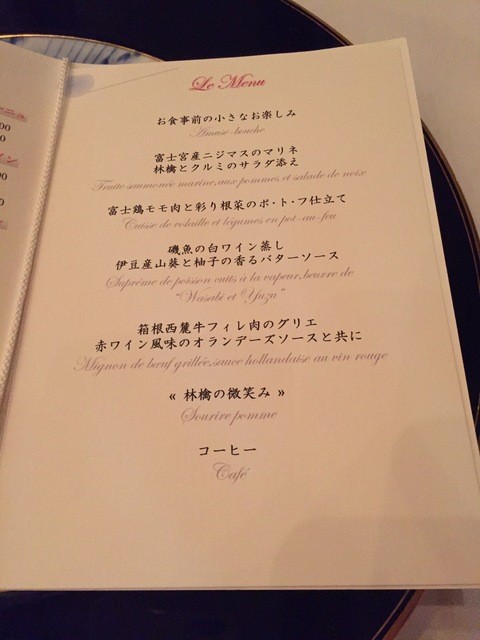 Le Menu
お食事前の小さなお楽しみ
Amuse-bouche
富士宮産ニジマスのマリネ
林檎とクルミのサラダ添え
Truite saumonée marine,aux pommes et salade de noix
富士鶏モモ肉と彩り根菜のポ・ト・フ仕立て
Cuisse de volaille et légumes en pot-au-feu
磯魚の白ワイン蒸し
伊豆産山葵と柚子の香るバターソース
Suprême de poisson cuits à la vapeur,beurre de
"Wasabi et Yuzu"
箱根西麓牛フィレ肉のグリエ
赤ワイン風味のオランデーズソースと共に
Mignon de bœuf grillée,sauce hollandaise au vin rouge
« 林檎の微笑み »
Sourire pomme
コーヒー
Café